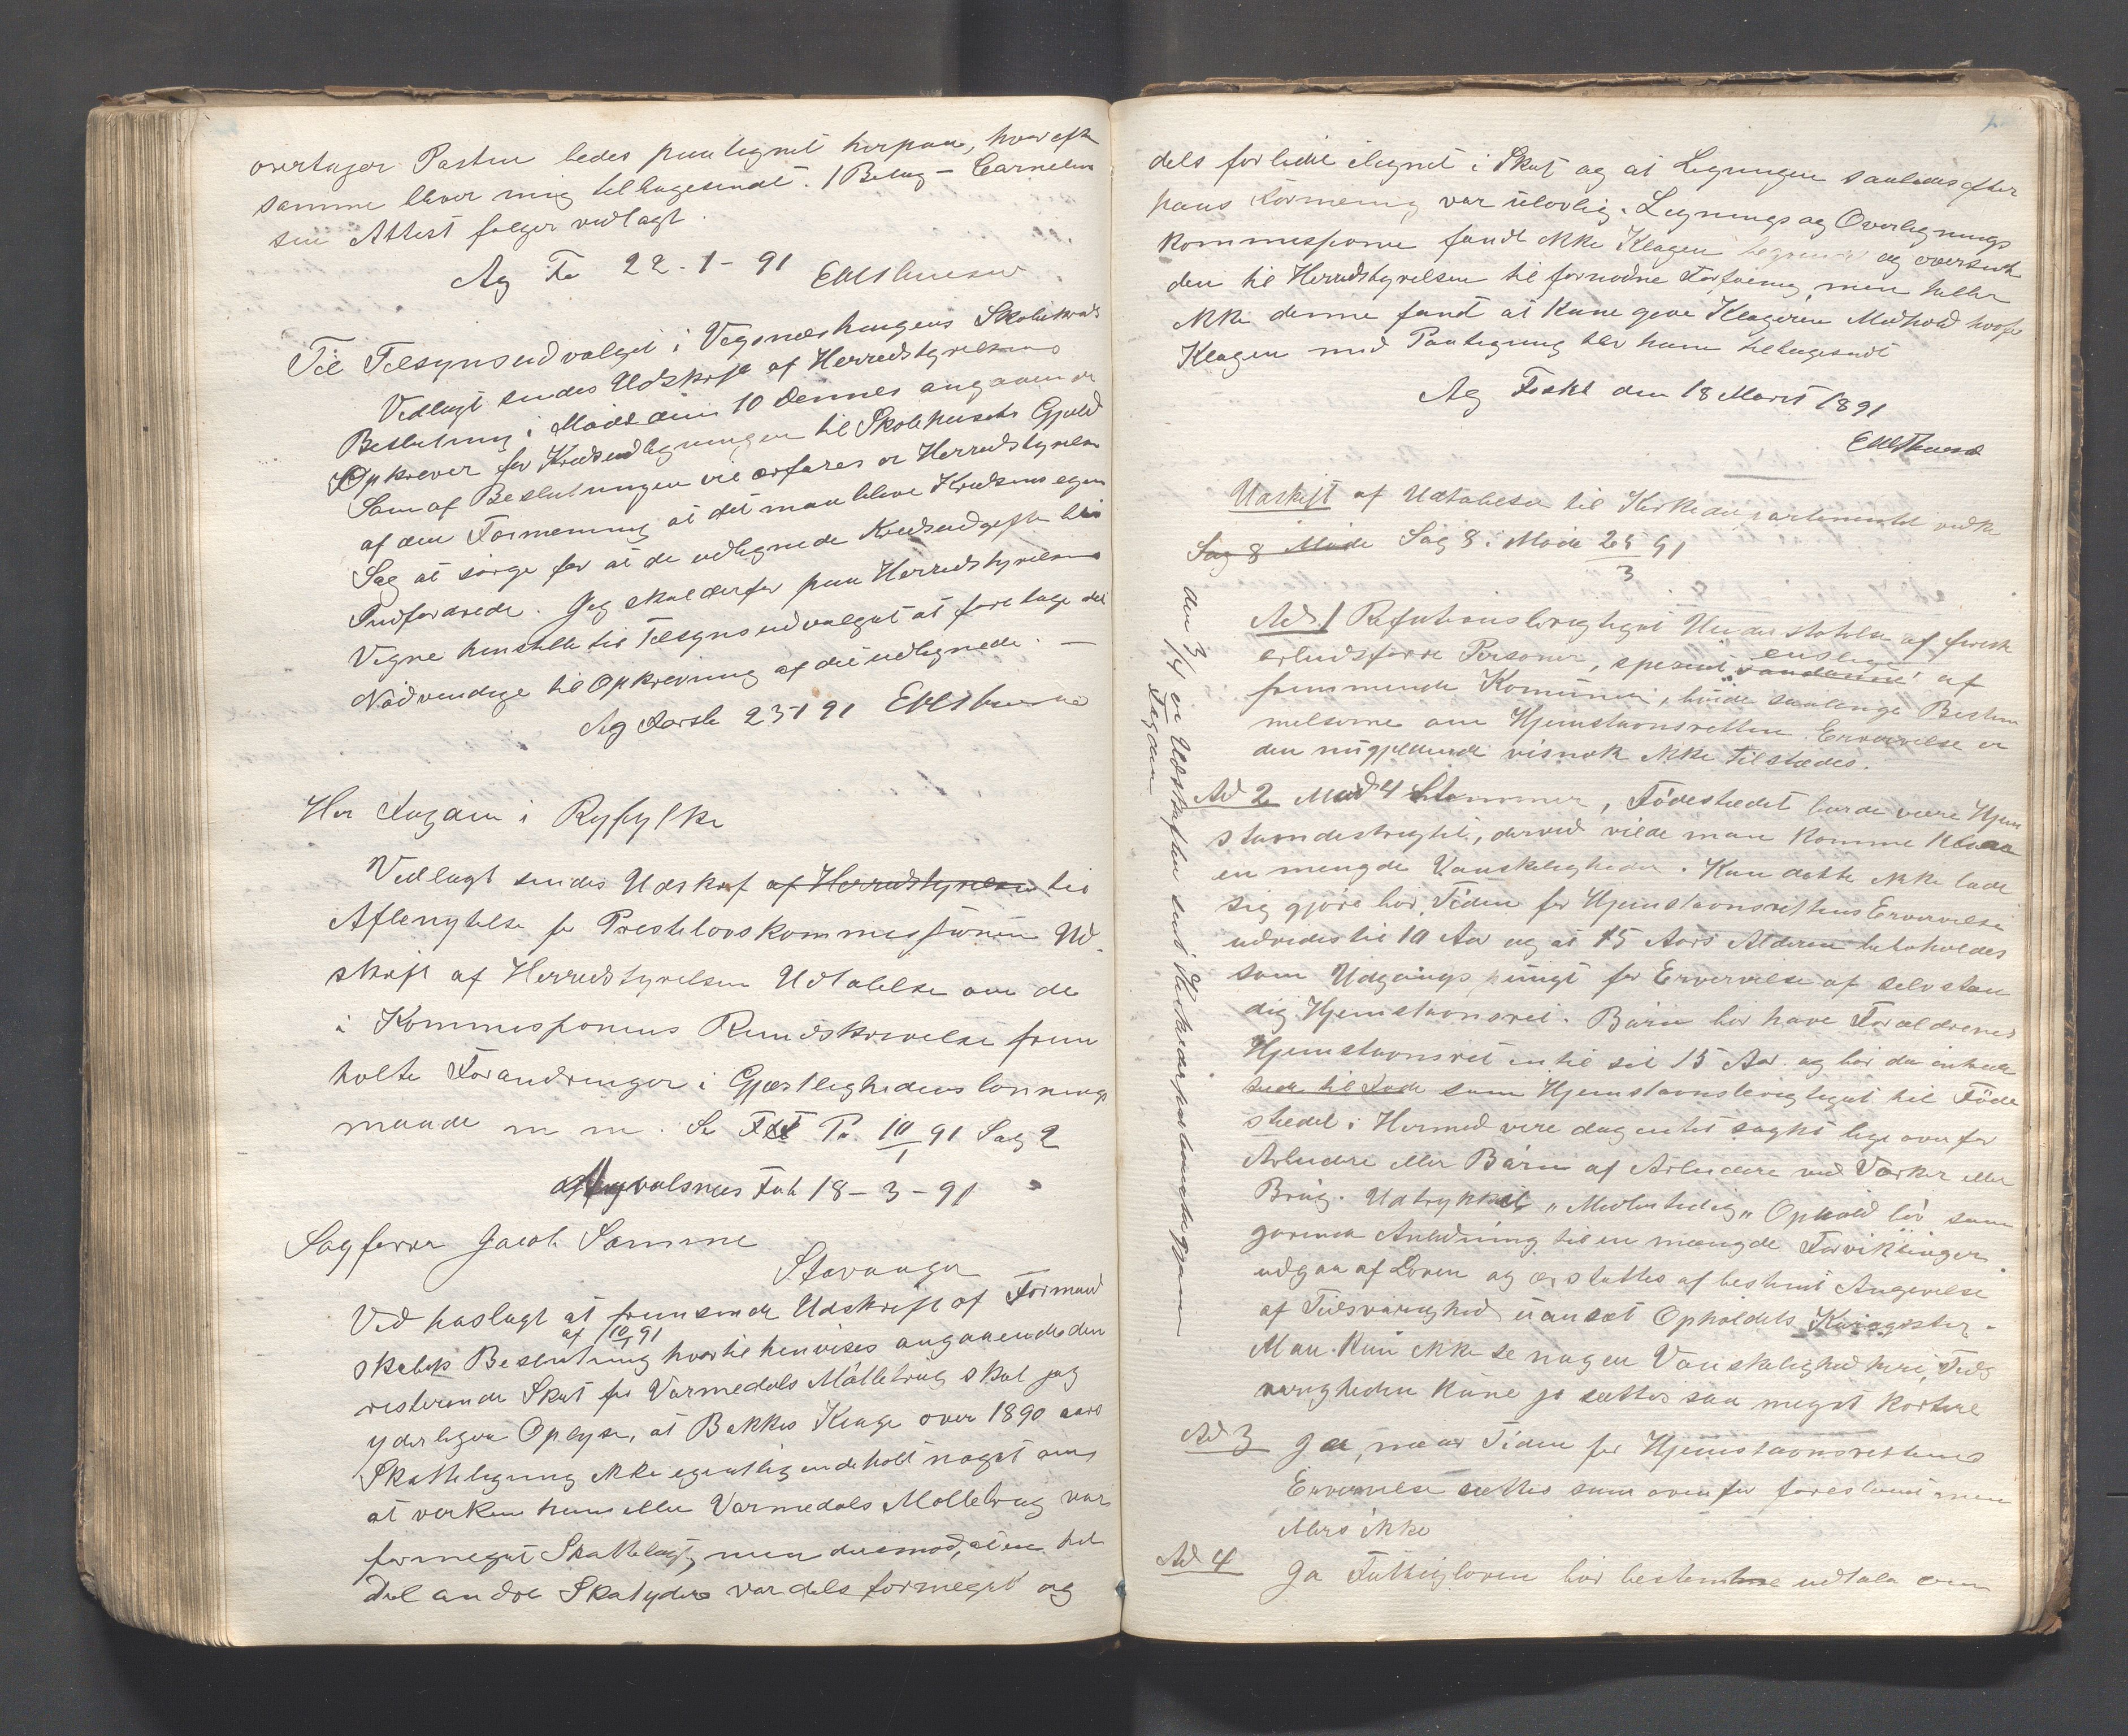 overtager Posten bedes paategnet herpaa, hvorefter
samme bliver mig tilbagesendt. 1 Bilag – Carnelius
sen Attest følger vedlagt.
Ag Fo 22-1-91
Til Tilsynsudvalget i Skolekreds
Vedlagt sendes Udskrift af Herredstyrelsens
Beslutning i Møde den 10 Dennes angaaende
Opkrever for Kredsudligningen til Skolehusets Gjæld
Som af Beslutningen vil erfares er Herredstyrelsen
af den Formening at det maa blive Kredsens egen
Sag at sørge for at de udlignede Kredsudgifter bli
Indfordrede. Jeg skal derfor paa Herredstyrelsens
Vegne henstille til Tilsynsudvalget at foretage det
Nødvendige til Opkrevning af det udlignede. –
Ag Forsk 23-1 91
Her Fogden i Ryfylke
Vedlagt sendes Udskrif af Herredstyrelsen til
Aflenytelse fr Prestelovskommissionen Ud-
skrift af Herredstyrelsen Udtalelse om de
i Kommissionens Rundskrivelse frem
holte Forandringer i Gjestlighedens lønnings
maade m m. Se F Pr. 10/1 91 Sag 2
Avalsnes Foh 18-3-91
Sagfører Jacob Sømme
Stavanger
Ved hoslagt at fremsende Udskrift af Formand
af 10/1 91
skabets Beslutning hvortil henvises angaaende den
resterende Skat for Vormedals Møllebrug skal jeg
yderligere Oplyse, at Bakkes Klage over 1890 aars
Skatteligning ikke egentlig indeholt noget om
at verken ham eller Vormedals Møllebrug var
formeget Skattelagt, men derimod, at en hel
Del andre Skatydere var dels formeget og
dels forlidet ilignet i Skat og at Ligningen saaledes efter
hans Formening var ulovlig. Lignings og Overlignings
kommissionen fandt ikke Klagen begrundet og oversendte
den til Herredstyrelsen til fornødne Forføining, men heller
ikke denne fandt at kune give Klageren Medhold hvorfor
Klagen med Paategning blev ham tilbagesendt
Ag Foskt den 18 Marts 1891
Udskrift af Udtalelse til Kirkedepartementet vedk
Sag 8 Møde Sag 8 i Møde 25/3 91
Ad. 1 Refutionsberegtiget Understøtelse af fuldt
arbeidsføre Personer, specielt enslige af
fremmende Komuner, burde saalenge Bestem
melserne om Hjemstavnsretten Ervervelse er
den nugjeldende visnok ikke tilstædes.
Ad 2 Mod 4 Stemmer, Fødestedet burde være Hjem
stavndestrigtet, derved vilde man komme klaar
en mengde Vanskeligheder. Kan dette ikke lade
sig gjøre bør Tiden for Hjemstavnsrettens Ervervelse
udvides til 10 Aar og at 15 Aars Alderen beholdes
som Udgangspungt for Ervervelse af selvstæn
dig Hjemstavnsret. Børn bør have Forældrenes
Hjemstavnsret intil sit 15 Aar og bør da
som Hjemstavnsberegtiget til Føde
stedet i Hermed vere dog intet sagt lige overfor
Arbeidere eller Børn af Arbeidere ved Værker eller
Brug. Udtrykket „Midlertidig" Ophold bør som
givende Anledning til en mængde Forviklinger
udgaa af Loven og erstattes af bestemt Angivelse
af Tidsvarighed uanset Opholdets Karagter.
Man kan ikke se nogen Vanskelighed heri, Tids
varigheden kune jo sættes saa meget kortere
Ad 3 Ja, naar Tiden for Hjemstavnsrettens
Ervervelse sættes som ovenfor foreslaaet men
Ellers ikke
Ad 4 Ja Fattigloven bør bestemme udtale om
den 3/4 er Udskriften sent Kirkedepartementet gjennem
Fogden